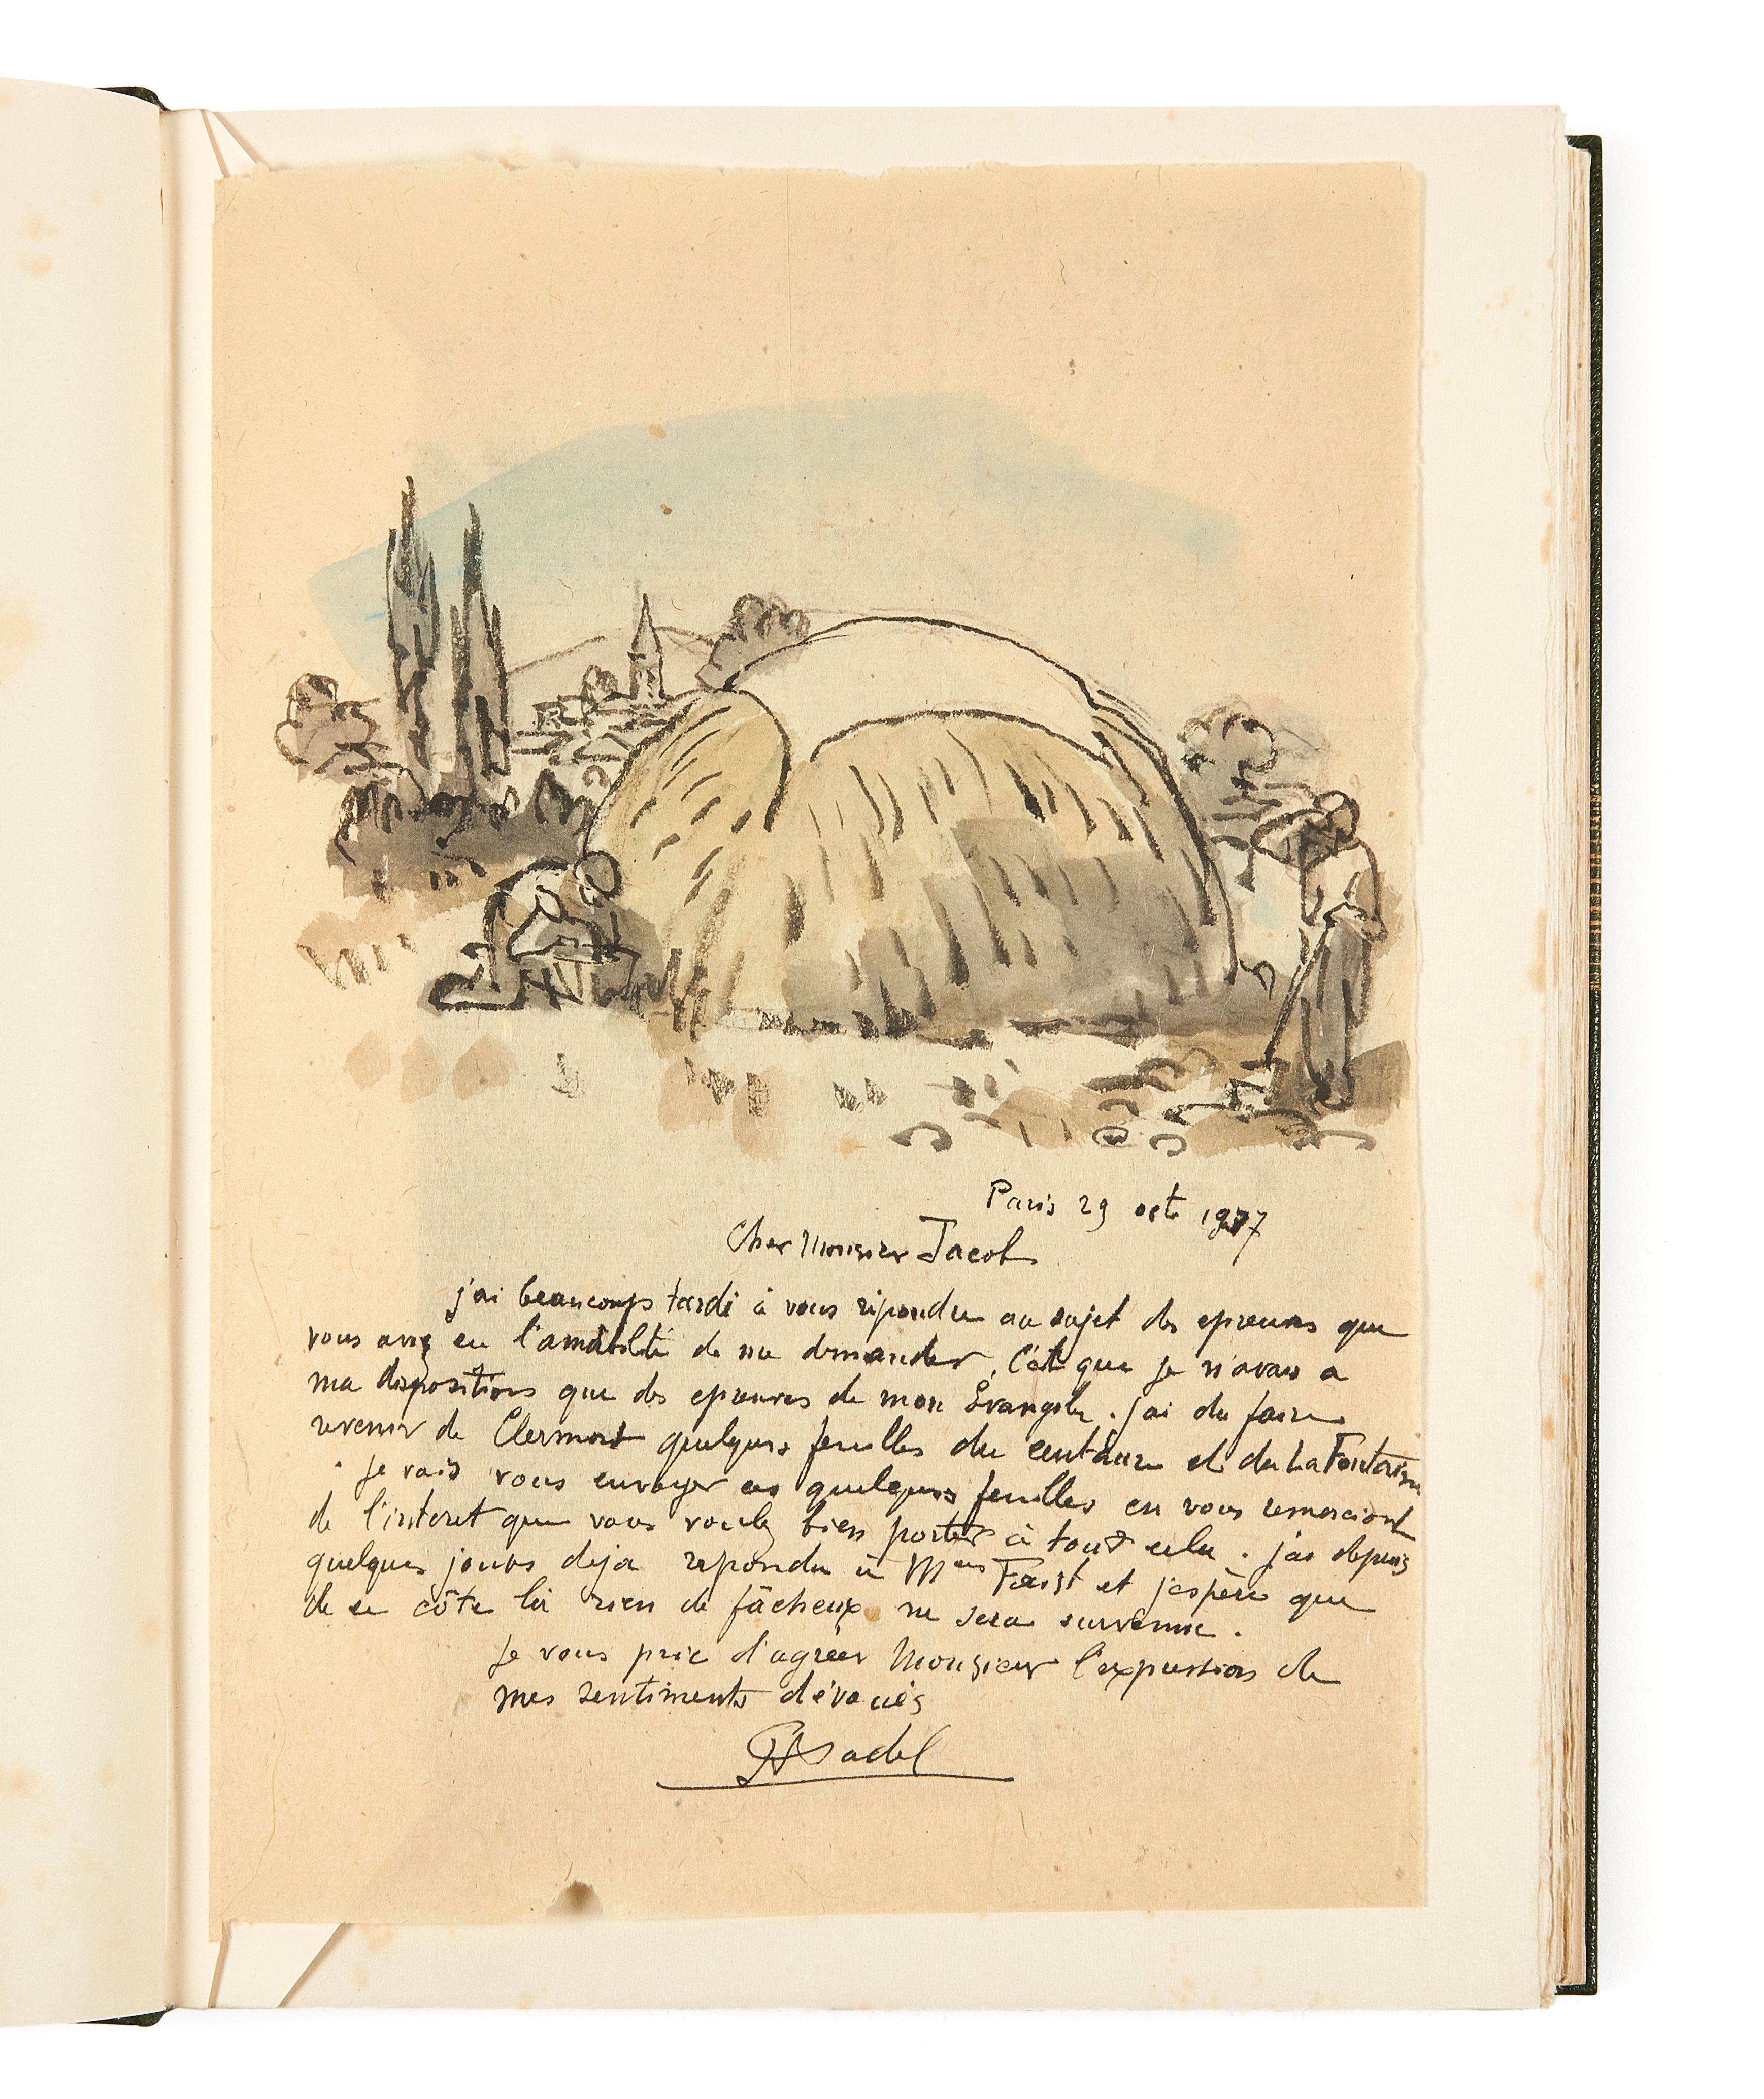 Paris 29 oct 19
Cher Monsieur Jacob
j'ai beaucoups tardé à vous répondre au sujet des epreuves que
vous avez eu l'amabilité de me demander. C'est que je n'avais a
ma dispositions que des epreuves de mon Evangile. j'ai du faire
revenir de Clermont quelques feuilles du centaure et du La Fontaine
. je vais vous envoyer ces quelques feuilles en vous remerciant
de l'interet que vous voulez bien porter à tout cela. j'ai depuis
quelques jours deja repondu à et j'espère que
de ce côte là rien de fâcheux ne sera survenu.
je vous prie d'agréer Monsieur l'expression de
mes sentiments dévoués